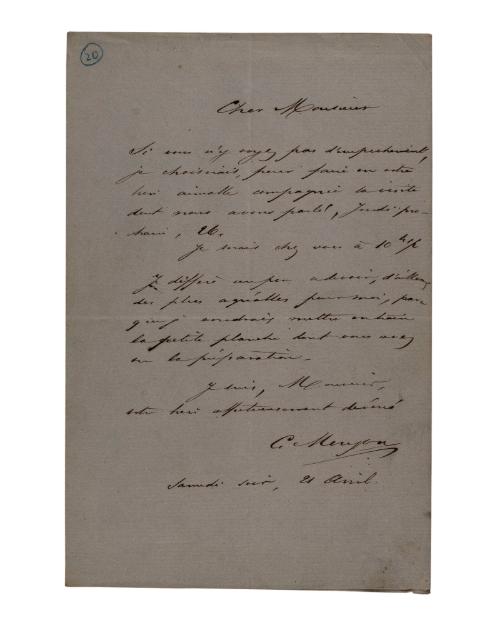 20
Cher Monsieur
Si vous n'y voyez pas d'empêchement,
je choisirais, pour faire en votre
bien aimable compagnie la visite
dont nous avons parlé, Jeudi pro-
chain, 26.
Je serais chez vous à 10 h
Je diffère un peu
des plus agréables pour moi, parce
voudrais mettre en train
la petite planche dont vous avez
eu la préparation.
Je suis, Monsieur,
votre bien affectueusement dévoué
C. Meryon
Samedi soir, 21 Avril.